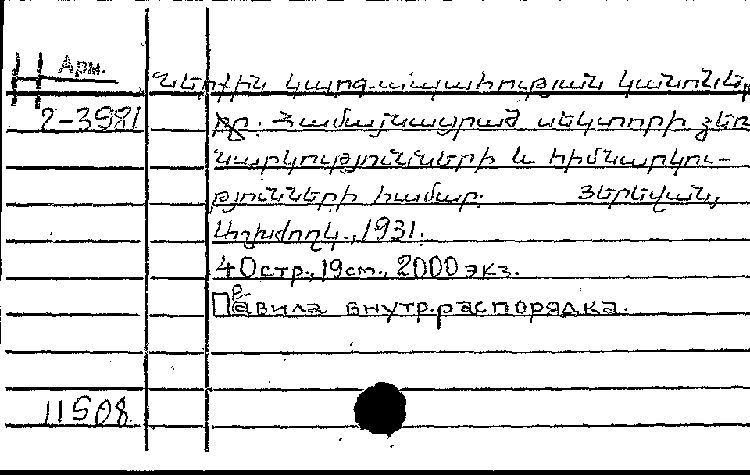 Арм.
Ներքին կարգապահության կանոններ,
2-3981
Համայնացրած սեկտորի ձեռ
նարկությունների և հիմնարկու-
թյունների համար. Յերեվան,
1931.
40стр., 19см., 2000 экз.
Правила внутр.распорядка.
11508